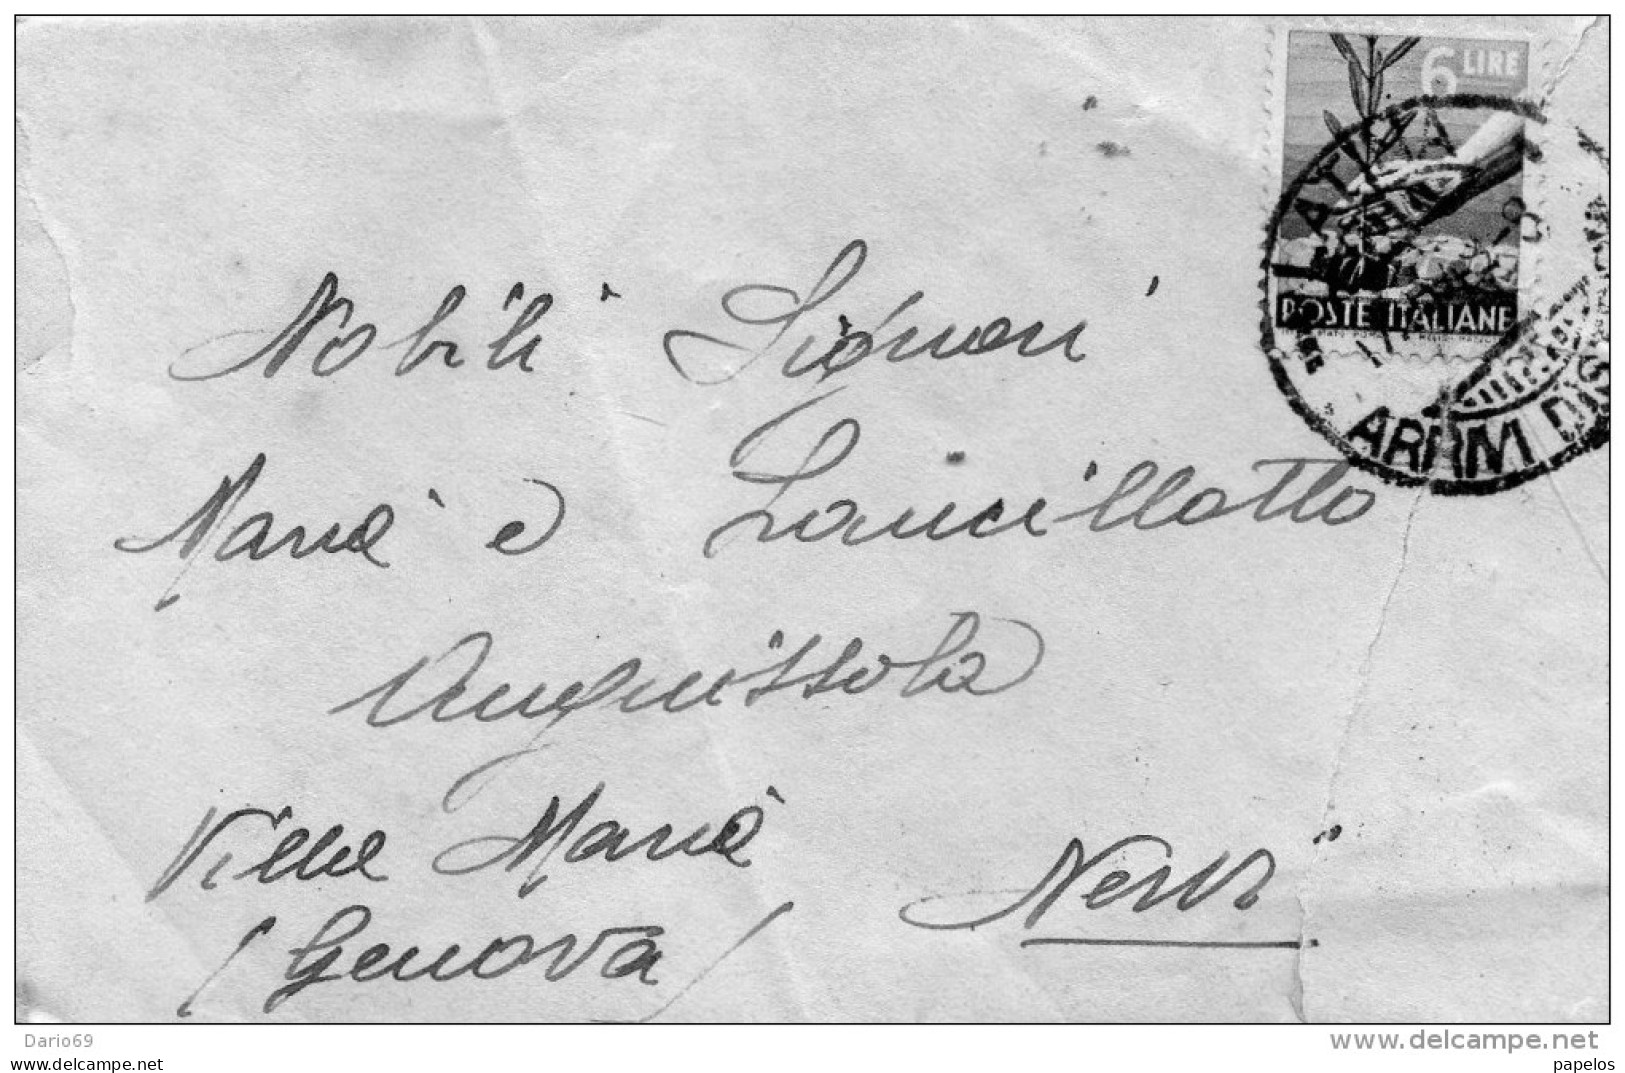 6 LIRE
POSTE ITALIANE
ARRIVI DIS
Nobili Signori
Maria e Lancillotto
Anguissola
Villa Maria
Nervi
(Genova)
Dario69
www.delcampe.net
www.delcampe.net
papelos